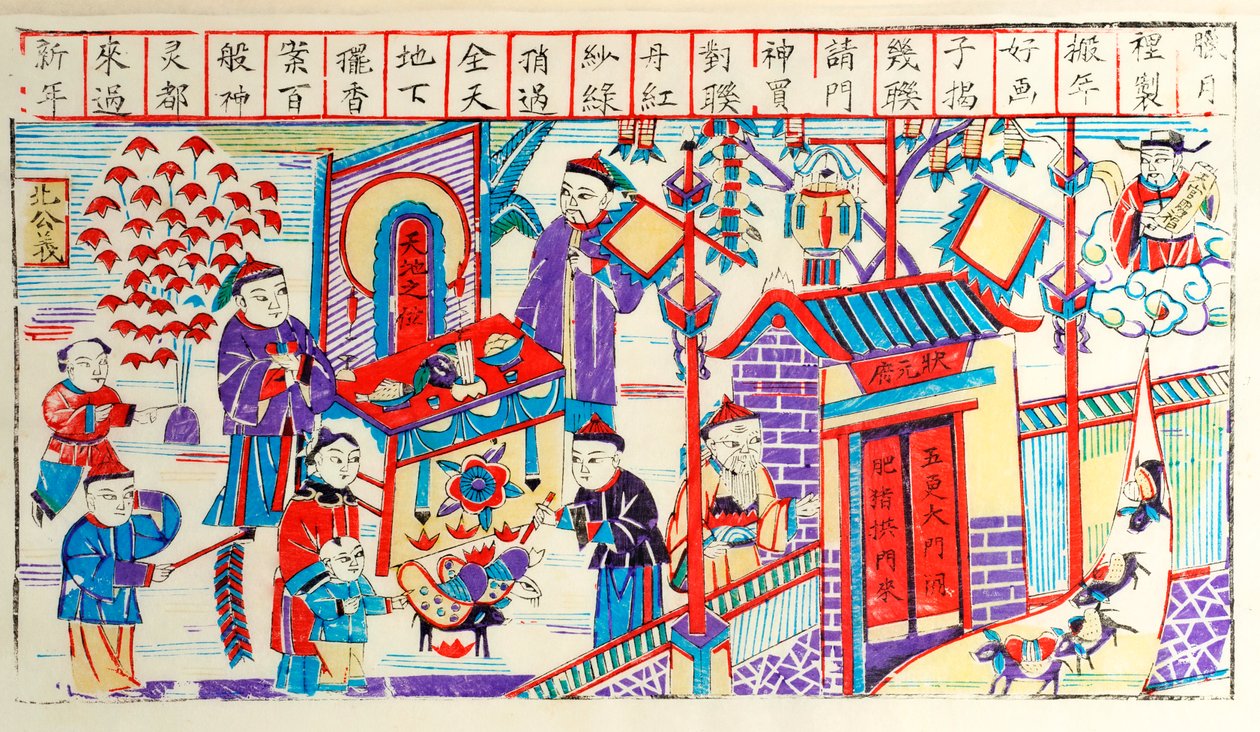 臘月
裡製
搬年
好画
子揭
幾聯
請門
神買
對聯
丹紅
紗綠
捎過
全天
地下
擺香
案百
般神
灵都
來過
新年
天官賜福
状元府
五更大門開
肥猪拱門來
天地之位
北公義